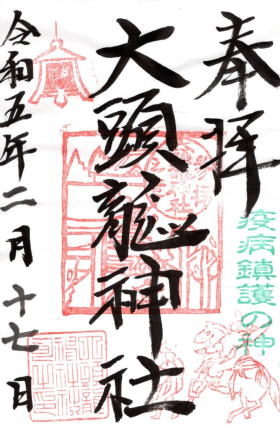 奉拝
疫病鎮護の神
大頭龍神社
令和五年二月十七日